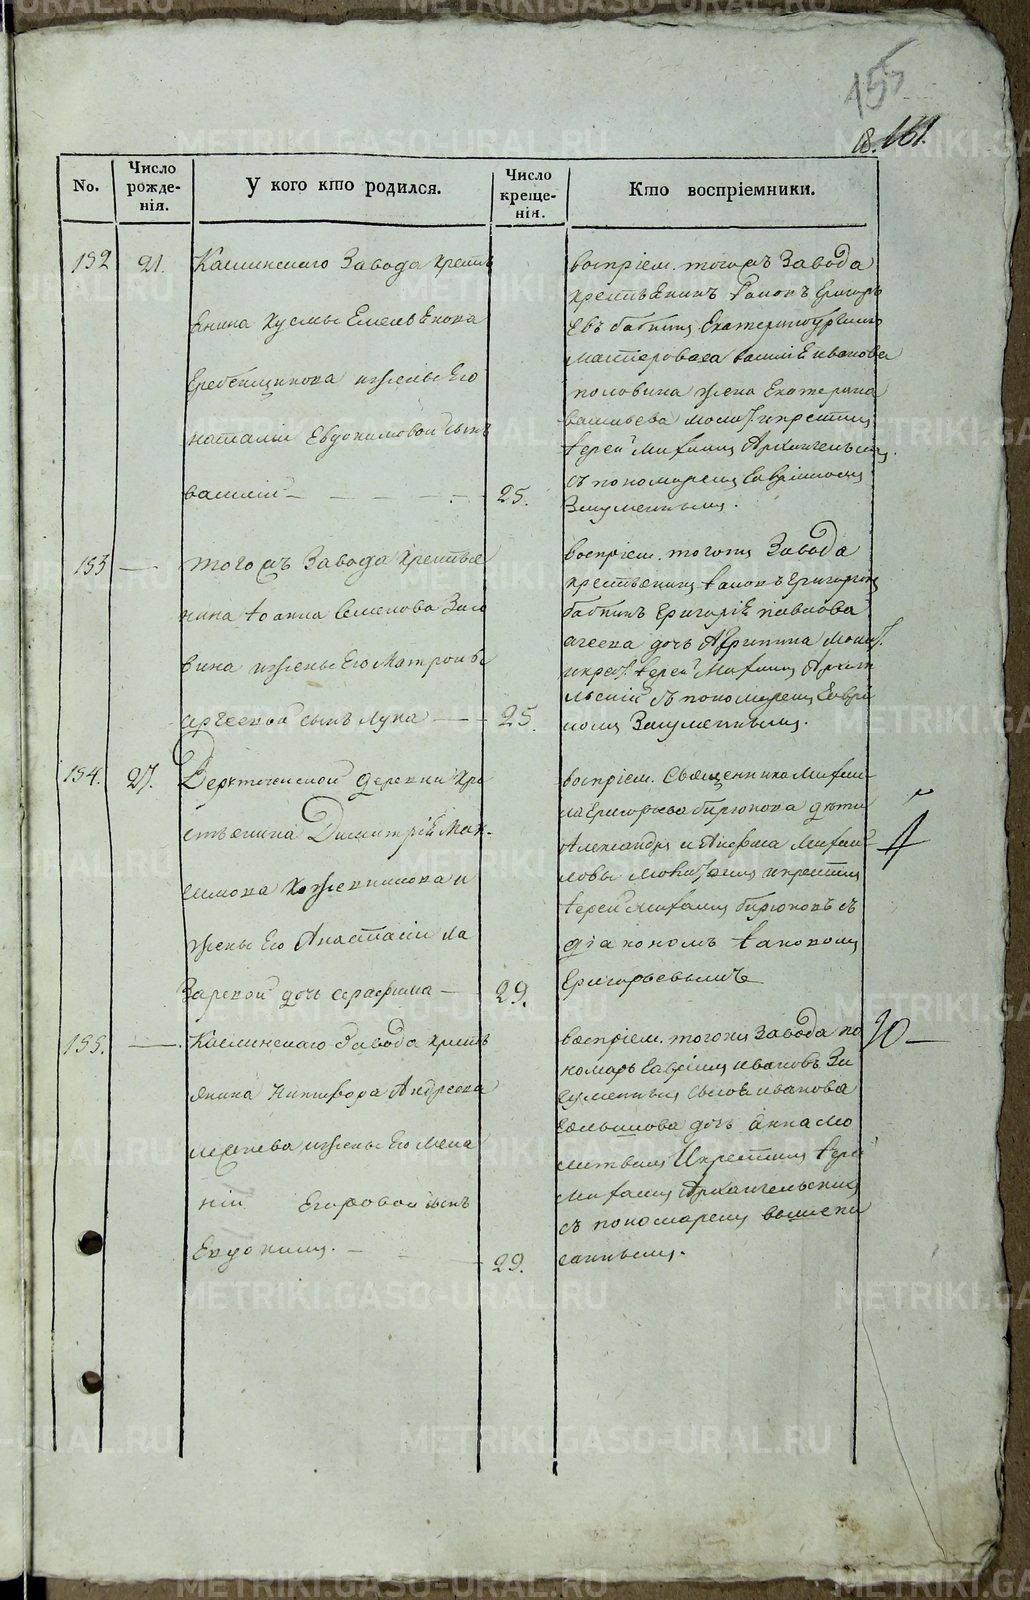 155
161.
No.
Число рожде-нія.
У кого кто родился.
Число креще-нія.
Кто воспріемники.
152
21.
Каслинскаго Завода крестья
янина Кузмы Емельянова
Гребенщикова и жены Его
наталіи Евдокимовой сынъ
василій
25.
воспріем. тогожъ Завода
крестьянинъ Іаковъ Григорь
евъ бабкинъ Екатеринбурскаго
мастероваго василія иванова
половина жена Екатерина
васильева молит. и крестил
Іерей Михаилъ Архангельскій
съ пономаремъ Гавріиломъ
153
тогожъ Завода крестья
нина Іоанна Семенова
вина и жены Его Матроны
сынъ Лука
25.
воспріем. тогожъ Завода
крестьянинъ Іаковъ Григорьевъ
бабкинъ Григорія павлова
агеева дочь Агрипина молит.
и крест. Іерей Михаилъ Арханге
льскій съ пономаремъ Гаврі
иломъ
154.
27.
деревни кре
стьянина Димитрія Мак-
симова Кожевникова и
жены Его Анастасіи Ла
заревой дочь серафима
29.
воспріем. Священника Михаи
ла Григорьева бирюкова дети
Александръ и Анфиса Михаи
ловы молитвилъ и крестилъ
Іерей Михаилъ бирюковъ съ
діакономъ Іаковомъ
Григорьевымъ
155.
Каслинскаго Завода крестья
янина Никифора Андреева
и жены Его Мела
ніи Егоровой сынъ
Евдокимъ.
29.
воспріем. тогожъ Завода по
номарь Гавріилъ ивановъ
иванова
дочь Анна мо
литвилъ и крестилъ Іерей
Михаилъ Архангельскій
съ пономаремъ вышепи
саннымъ.
METRIKI.GASO-URAL.RU